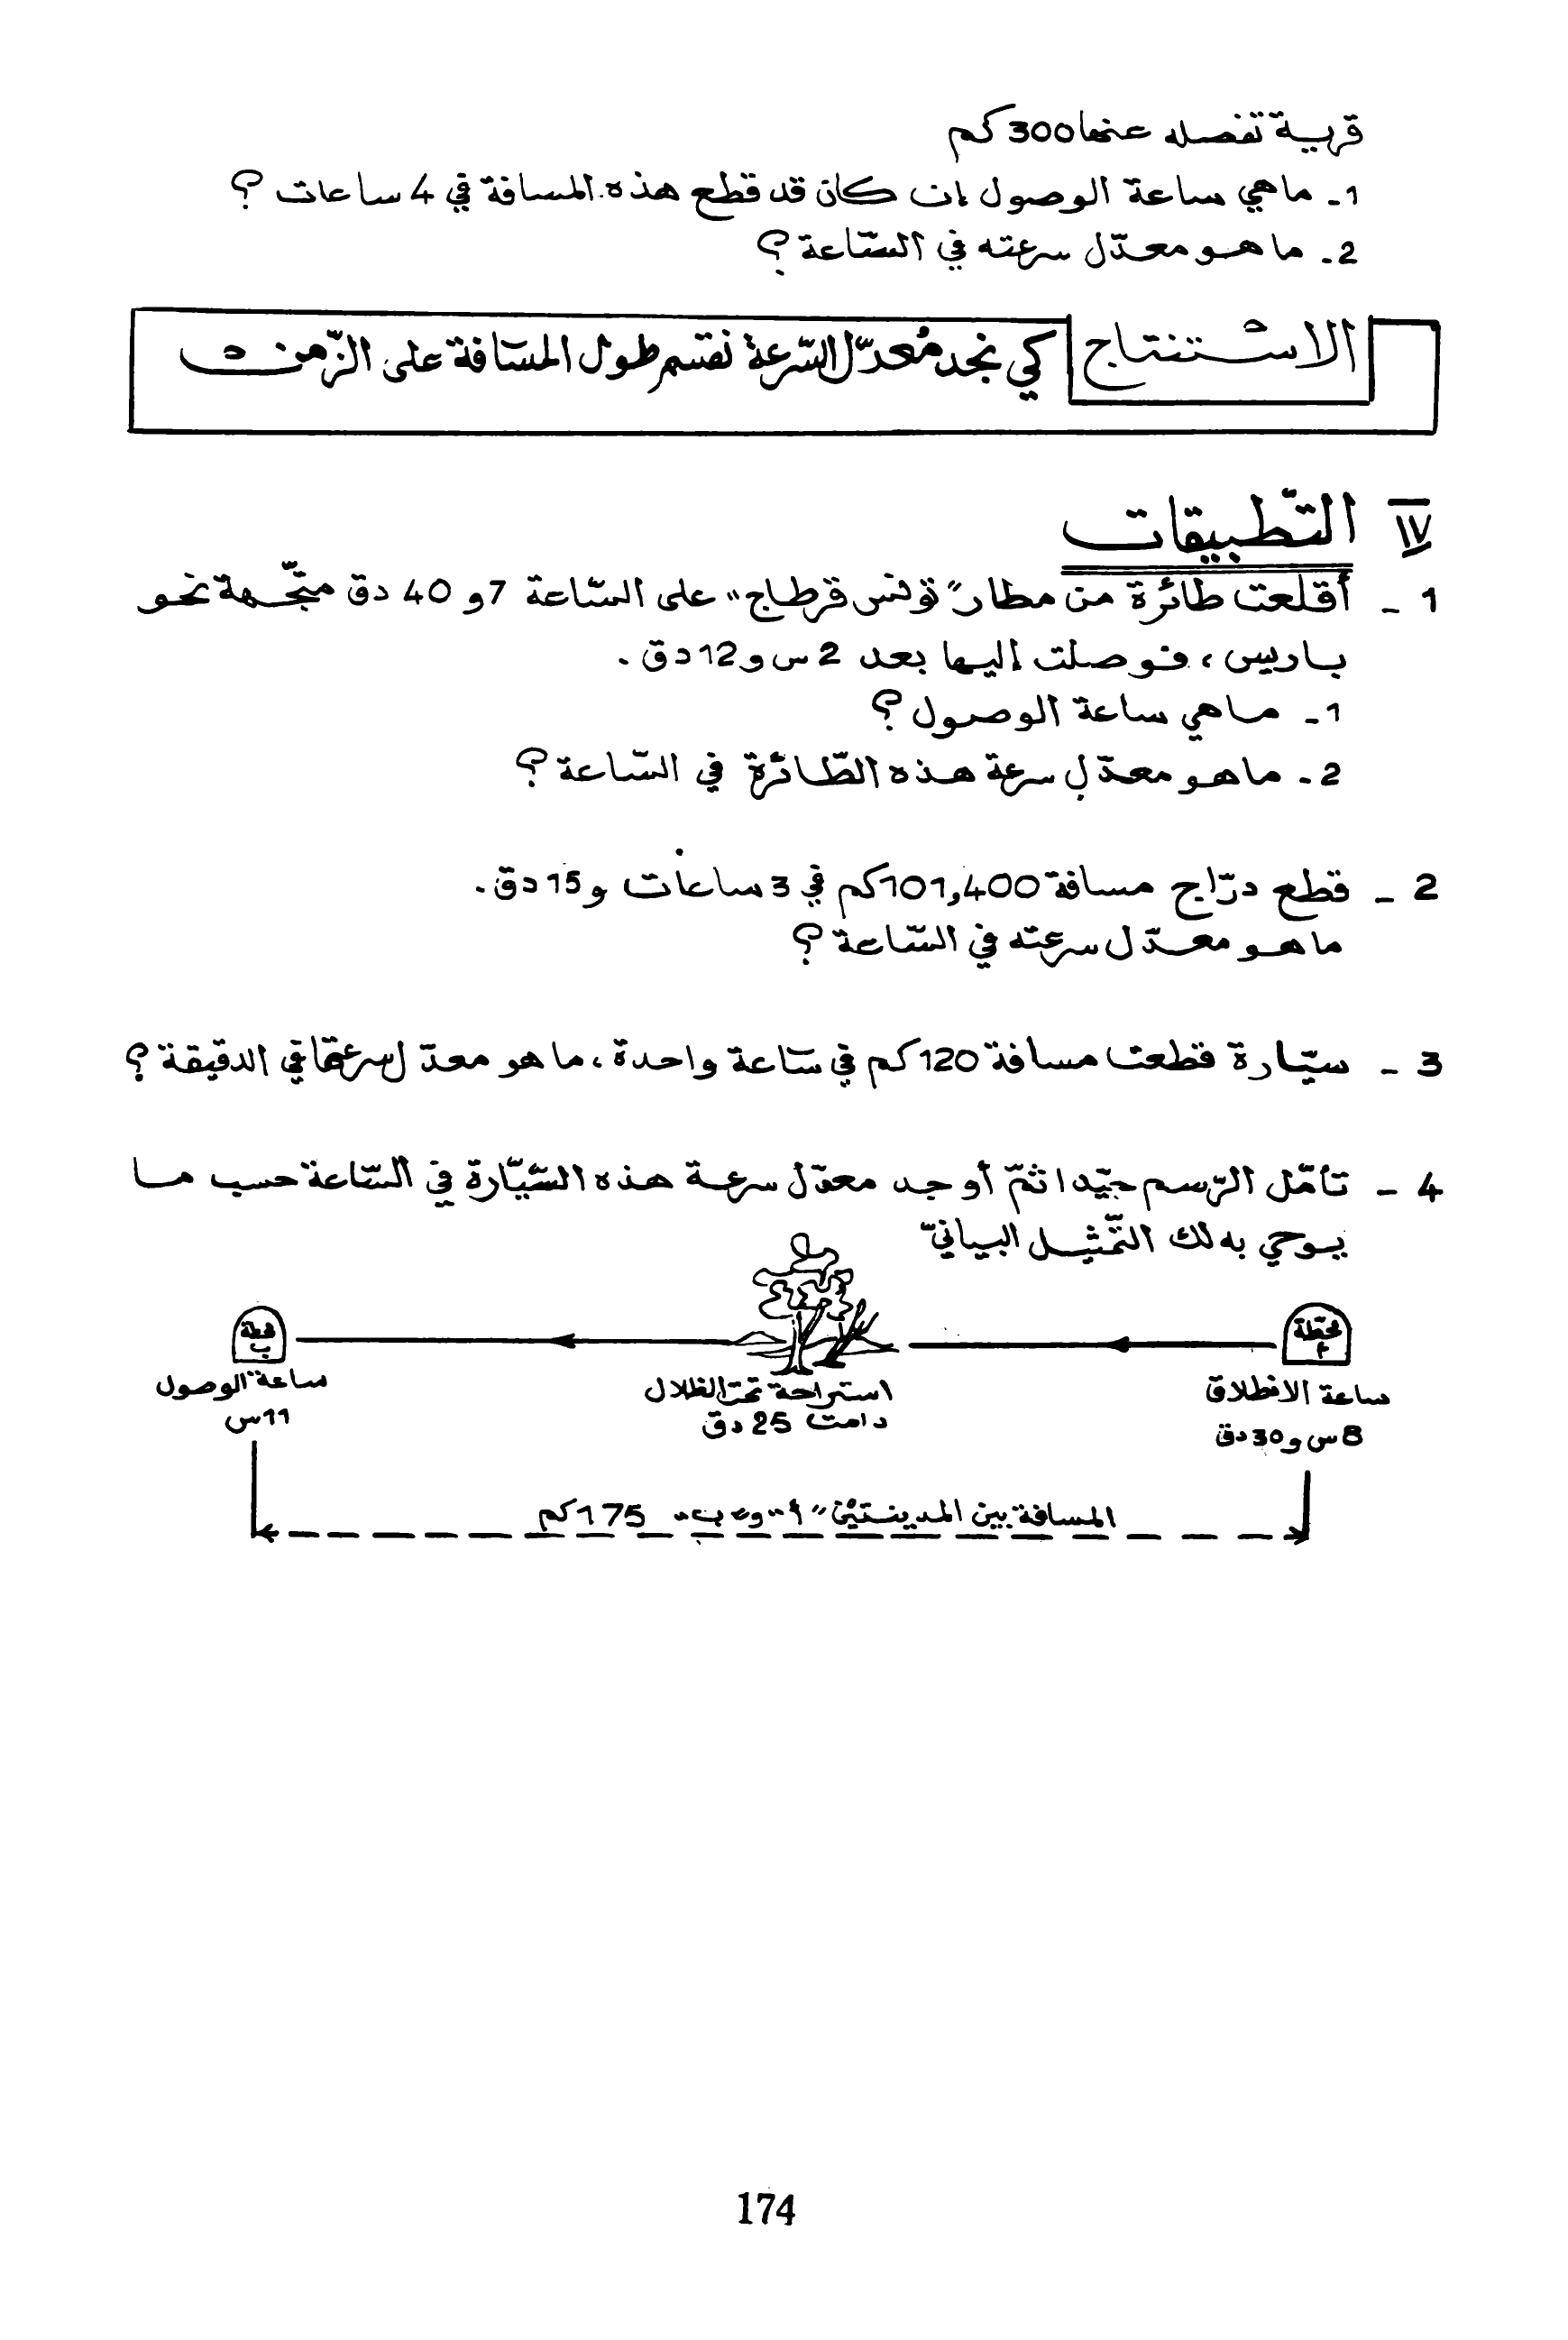 قرية تفصله عنها 300 كم
1 ـ ماهي ساعة الوصول إن كان قد قطع هذه المسافة في 4 ساعات ؟
2 ـ ما هو معدّل سرعته في السّاعة ؟
الاستنتاج كي نجد معدّل السّرعة نقسم طول المسافة على الزّمن
IV التّطبيقات
1 ـ أقلعت طائرة من مطار "تونس قرطاج" على السّاعة 7 و 40 دق متّجهة نحو
باريس ، فوصلت إليها بعد 2 س و 12 دق .
1 ـ ماهي ساعة الوصول ؟
2 ـ ما هو معدّل سرعة هذه الطّائرة في السّاعة ؟
2 ـ قطع درّاج مسافة 101,400 كم في 3 ساعات و 15 دق .
ما هو معدّل سرعته في السّاعة ؟
3 ـ سيّارة قطعت مسافة 120 كم في سّاعة واحدة ، ما هو معدّل سرعتها في الدقيقة ؟
4 ـ تأمّل الرّسم جيّدا ثمّ أوجد معدّل سرعة هذه السّيّارة في السّاعة حسب ما
يوحي به لك التّمثيل البيانيّ
محطّة أ
محطة ب
ساعة الانطلاق
8 س و 30 دق
استراحة تحت الظلال
دامت 25 دق
ساعة الوصول
11 س
المسافة بين المدينتين "أ" و "ب" 175 كم
174